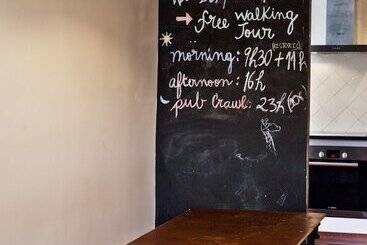 → free walking
Tour
morning: 9h30 + 11h
afternoon: 16h
pub crawl: 23h